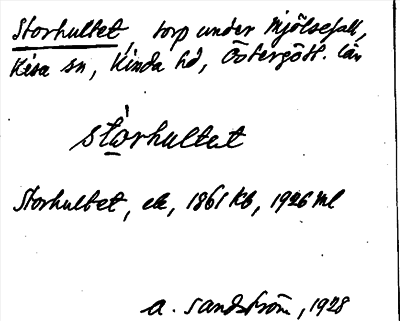 Storhultet, torp under Mjölsefall,
Kisa sn, Kinda hd, Östergötl. län
stòrhultet
Storhultet, ek, 1861 Kb, 1926 ml
A. Sandström, 1928